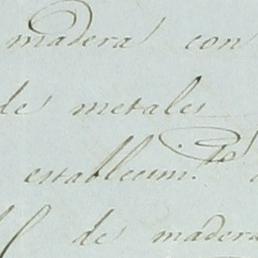 madera con
de metales
establecim.to
de madera